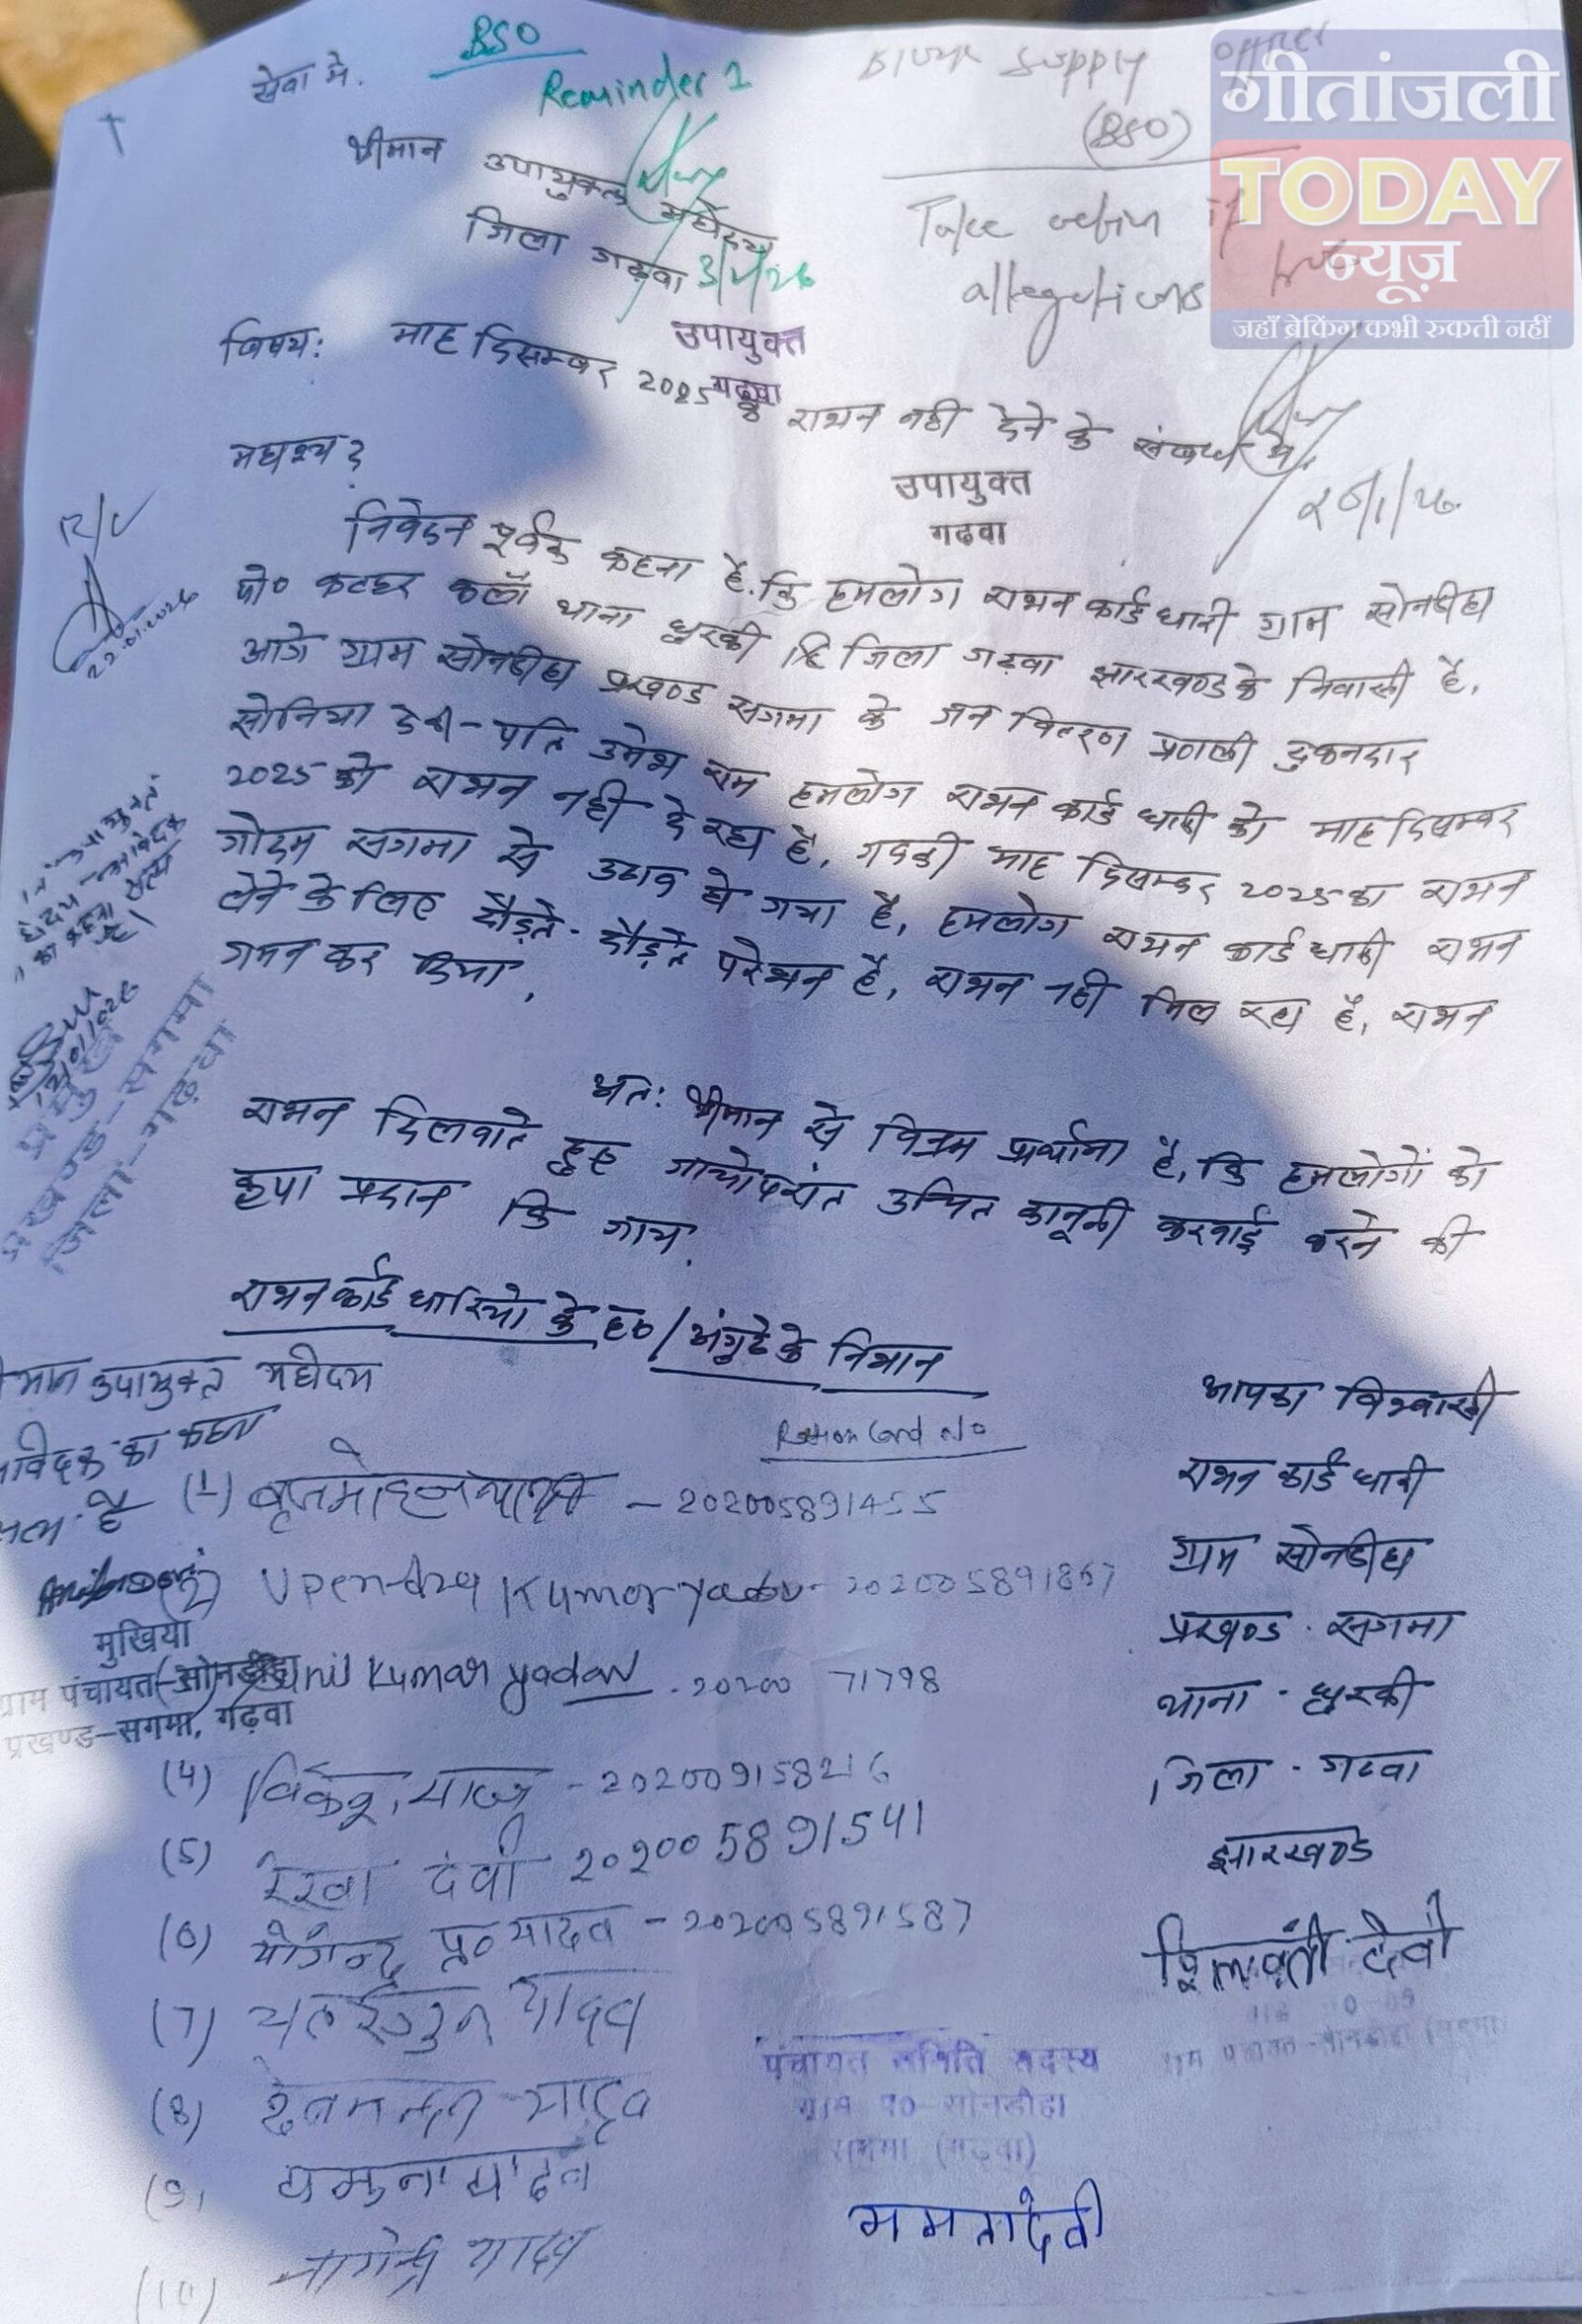 सेवा में,
BSO
Reminder 1
श्रीमान उपायुक्त महोदय
जिला गढ़वा
3/2/26
उपायुक्त
गढ़वा
Block Supply Officer
(BSO)
Take action if
allegations true
उपायुक्त
गढवा
गीतांजली
TODAY
न्यूज़
जहाँ ब्रेकिंग कभी रुकती नहीं
विषय: माह दिसम्बर 2025 के राशन नही देने के संबन्ध में,
महाशय,
निवेदन पूर्वक कहना है. कि हमलोग राशन कार्ड धारी ग्राम सोनडीहा
पो० कटहर कलाँ थाना धुरकी जिला गढ़वा झारखण्ड के निवासी है,
आगे ग्राम सोनडीहा प्रखण्ड सगमा के जन वितरण प्रणाली दुकनदार
सोनिया देवी - पति उमेश राम हमलोग राशन कार्ड धारी को माह दिसम्बर
2025 को राशन नही दे रहा है, जबकी माह दिसम्बर 2025 का राशन
गोदम सगमा से उठाव हो गया है, हमलोग राशन कार्ड धारी राशन
लेने के लिए दौड़ते-दौड़ते परेशन है, राशन नही मिल रहा है, राशन
गमन कर दिया,
अत: श्रीमान से विनम्र प्रर्थाना है, कि हमलोगों को
राशन दिलवाते हुए जाचोपरांत उचित कानूनी करवाई करने की
कृपा प्रदान कि जाय.
R/V
22.01.2026
प्रमुख
प्रखण्ड-सगमा
जिला-गढ़वा
राशन कार्ड धारियो के ह० / अंगुठे के निशान
उपायुक्त महोदय
का कहना
है
मुखिया
ग्राम पंचायत-सोनडीहा
प्रखण्ड-सगमा, गढ़वा
Ration Card No
(1) बृजमोहन - 202005891455
(2) Upendra Kumar yadav - 202005891867
Anil Kumar yadav - 20200 71798
(4) 202009158216
(5) रेखा देवी 202005891541
(6) योगेन्द्र प्र० यादव - 202005891587
(7) यादव
(8) यादव
(9) यमुना यादव
(10) नागेन्द्र यादव
आपका विश्वासी
राशन कार्ड धारी
ग्राम सोनडीहा
प्रखण्ड - सगमा
थाना - धुरकी
जिला - गढवा
झारखण्ड
देवी
पंचायत समिति सदस्य
ग्राम पं० सोनडीहा
सगमा (गढ़वा)
ममता देवी